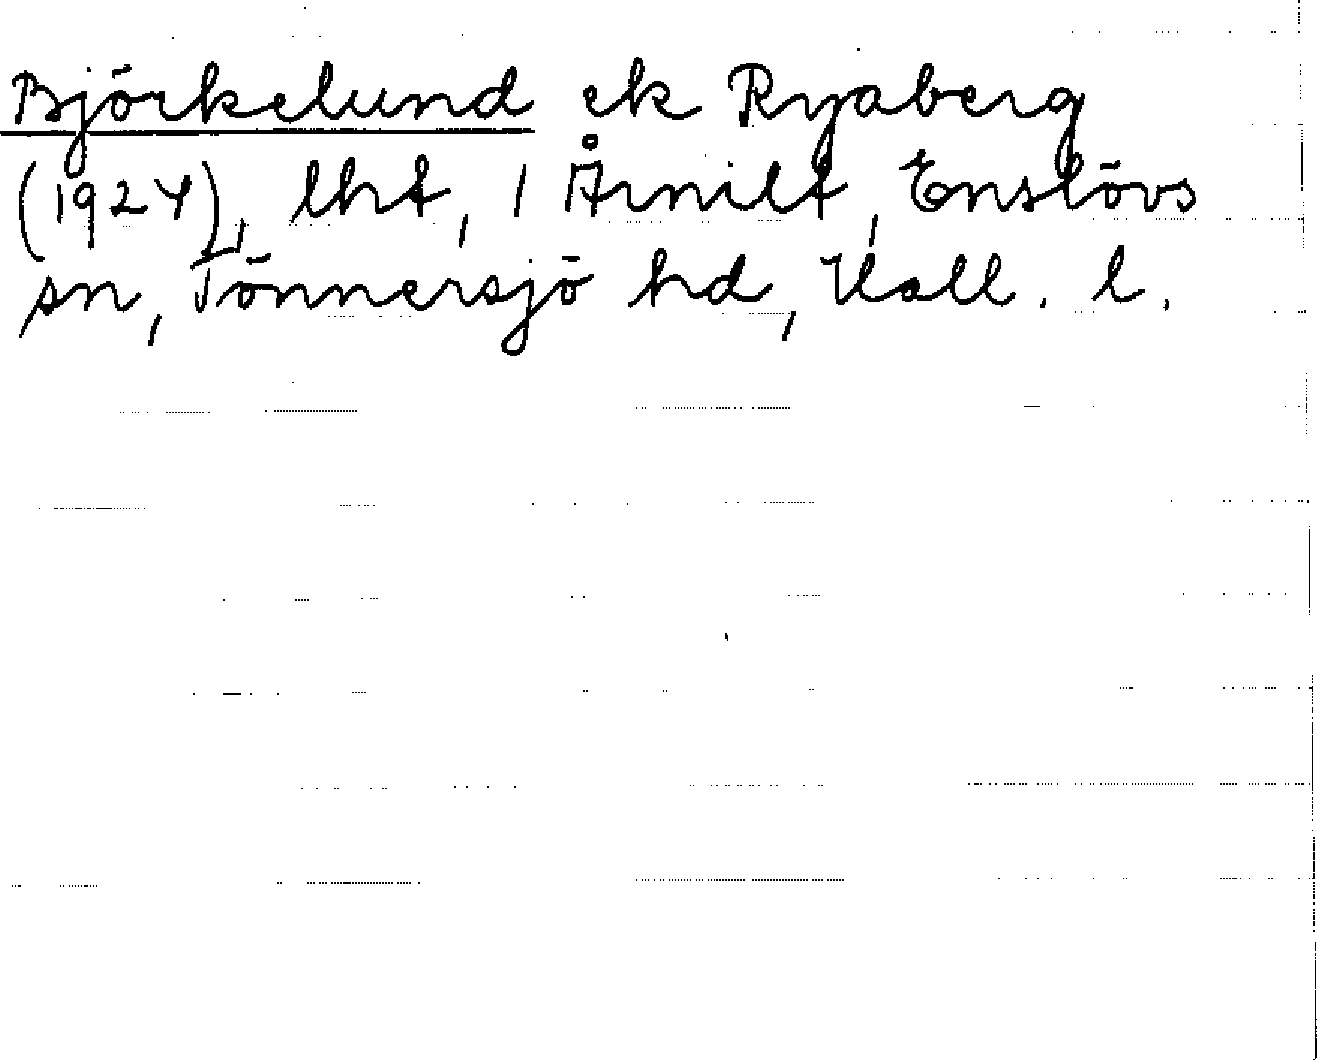 Björkelund ek Ryaberg
(1924), lht, 1 Årnilt, Enslövs
sn, Tönnersjö hd, Hall. l.